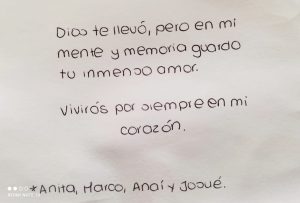 Dios te llevó, pero en mi
mente y memoria guardo
tu inmenso amor.
Vivirás por siempre en mi
corazón.
*Anita, Marco, Anaí y Josué.